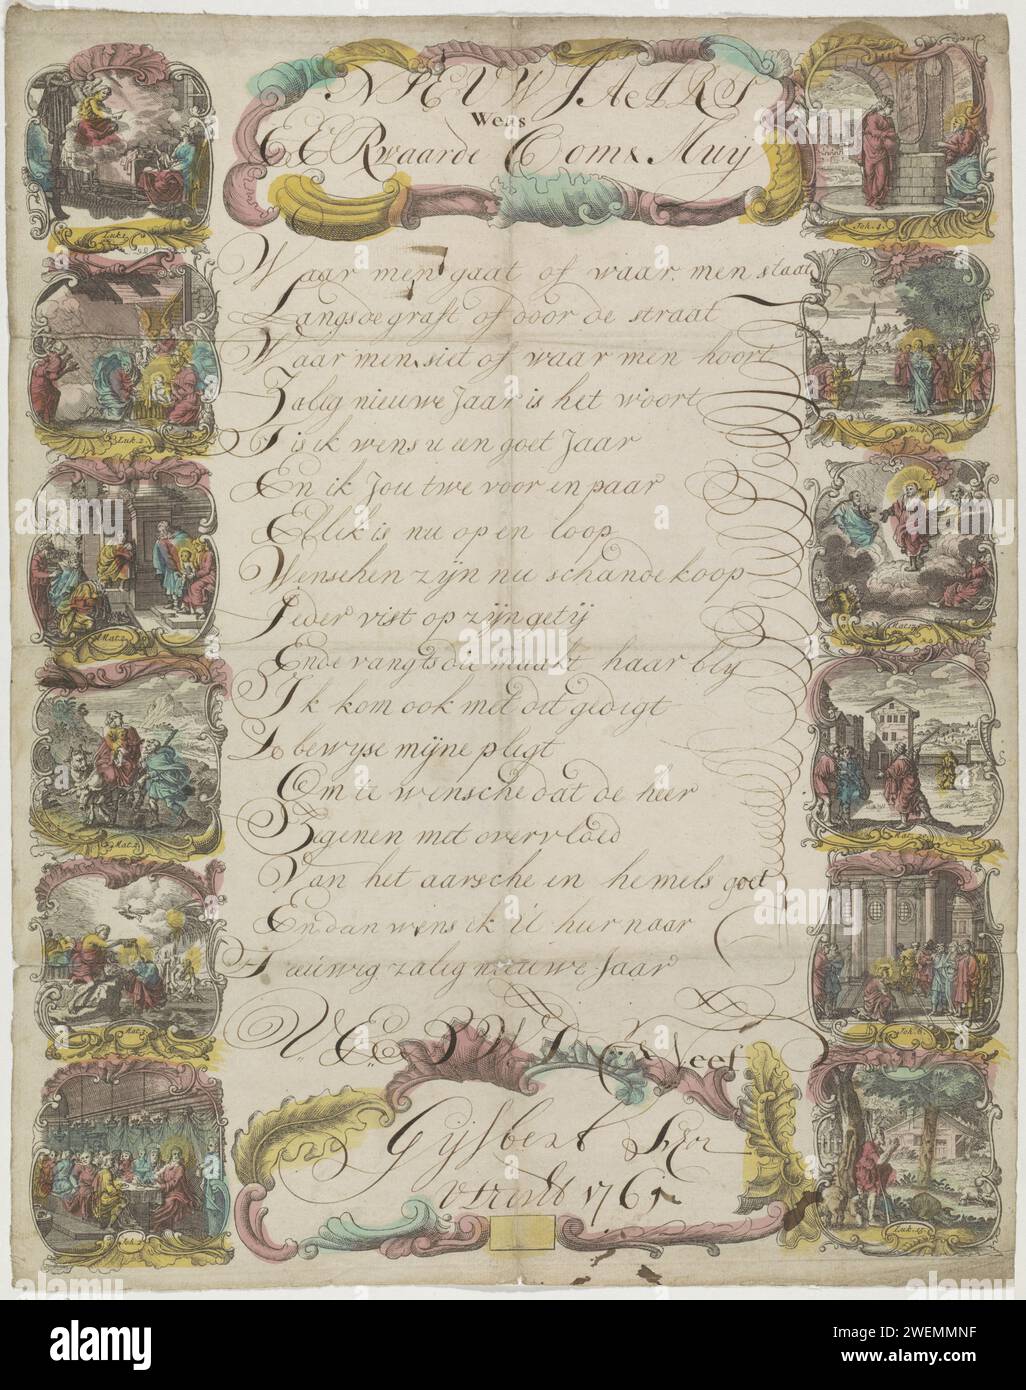 NIEUWJAARS
Wens
EERwaarde Oom & Muij
Waar men gaat of waar men staat
Langs de graft of door de straat
Waar men siet of waar men hoort
Zalig nieuwe Jaar is het woort
Tis ik wens u een goet Jaar
En ik Jou twe voor en paar
Ellik is nu op en loop
Wenschen zyn nu schande koop
Ieder vist op zyn getij
Ende vangts die maakt haar bly
Ik kom ook met dit gedigt
bewyse myne pligt
Om te wensche dat de heer
met overvloed
Van het aarsche en hemels goet
En dan wens ik U hier naar
zalig nieuwe Jaar
Neef
Gijsbert
1761
Luk. 1.
Luk. 2.
Mat. 2.
Mat. 2.
Mat. 3.
Joh. 4.
Luk. 15.
alamy
Image ID: 2WEMMNF
www.alamy.com